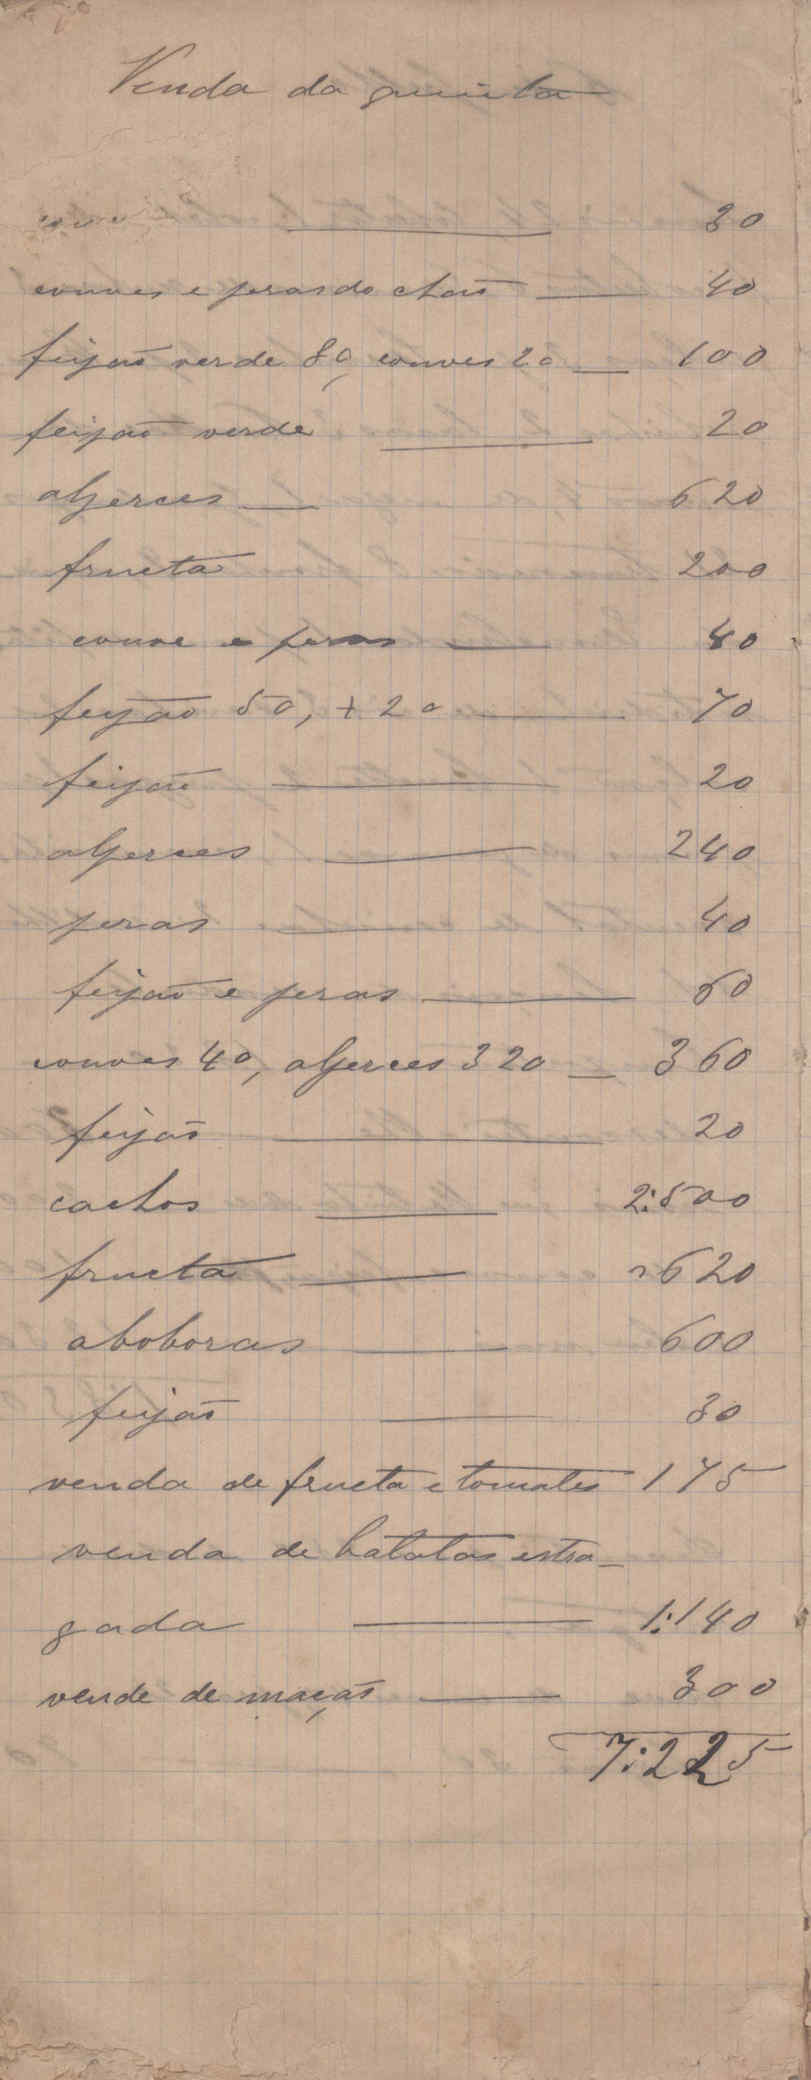 Venda da quinta
couve 30
couves e peras do chão 40
feijão verde 80, couves 20 100
feijão verde 20
alperces 620
fructa 200
couve e peras 40
feijão 50, + 20 70
feijão 20
alperces 240
peras 40
feijão e peras 60
couves 40, alperces 320 360
feijão 20
cachos 2:500
fructa 620
aboboras 600
feijão 30
venda de fructa e tomates 175
venda de batatas estra-
gada 1:140
vende de maçãs 300
7:225